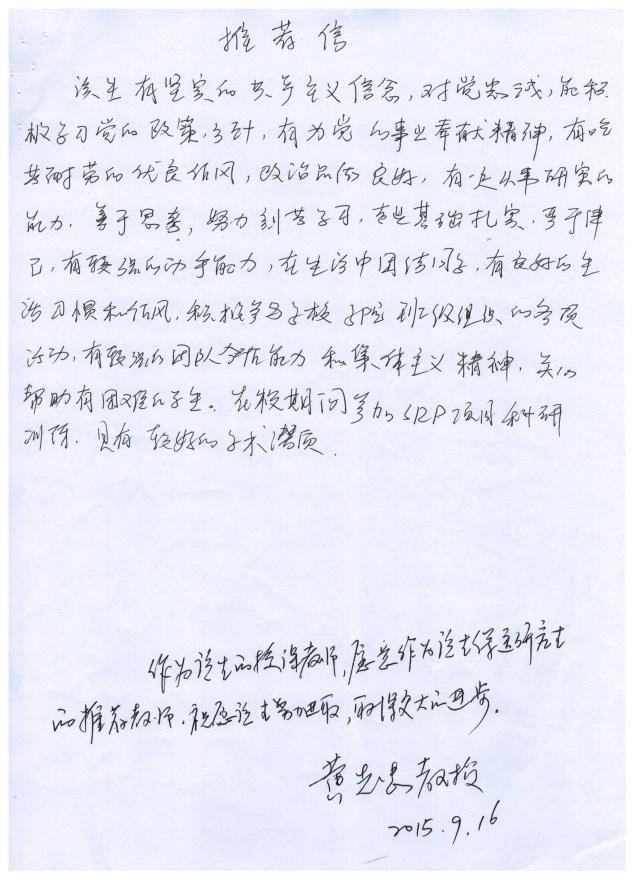 推荐信
该生有坚实的共产主义信念,对党忠诚,能积
极学习党的政策、方针,有为党的事业奉献精神,有吃
苦耐劳的优良作风,政治品质良好,有一定从事研究的
能力。善于思考,努力刻苦学习,专业基础扎实,严于律
己,有较强的动手能力,在生活中团结同学,有良好的生
活习惯和作风,积极参与学校 学院 班级组织的各项
活动,有较强的团队合作能力 和集体主义精神,关心
帮助有困难的学生。在校期间参加SRP项目科研
训练,具有较好的学术潜质.
作为该生的授课教师,愿意作为该生保送研究生
的推荐教师.祝愿该生努力进取,取得较大的进步.
黄 教授
2015.9.16